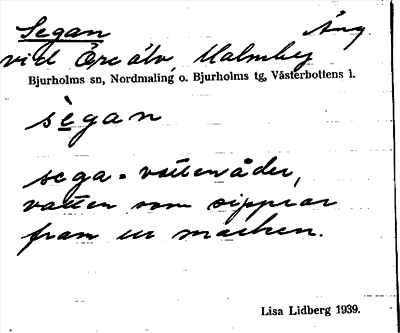 Segan Äng
vid Öreälv, Malmby
Bjurholms sn, Nordmaling o. Bjurholms tg, Västerbottens l.
sègan
sega = vattenåder,
vatten som sipprar
fram ur marken.
Lisa Lidberg 1939.